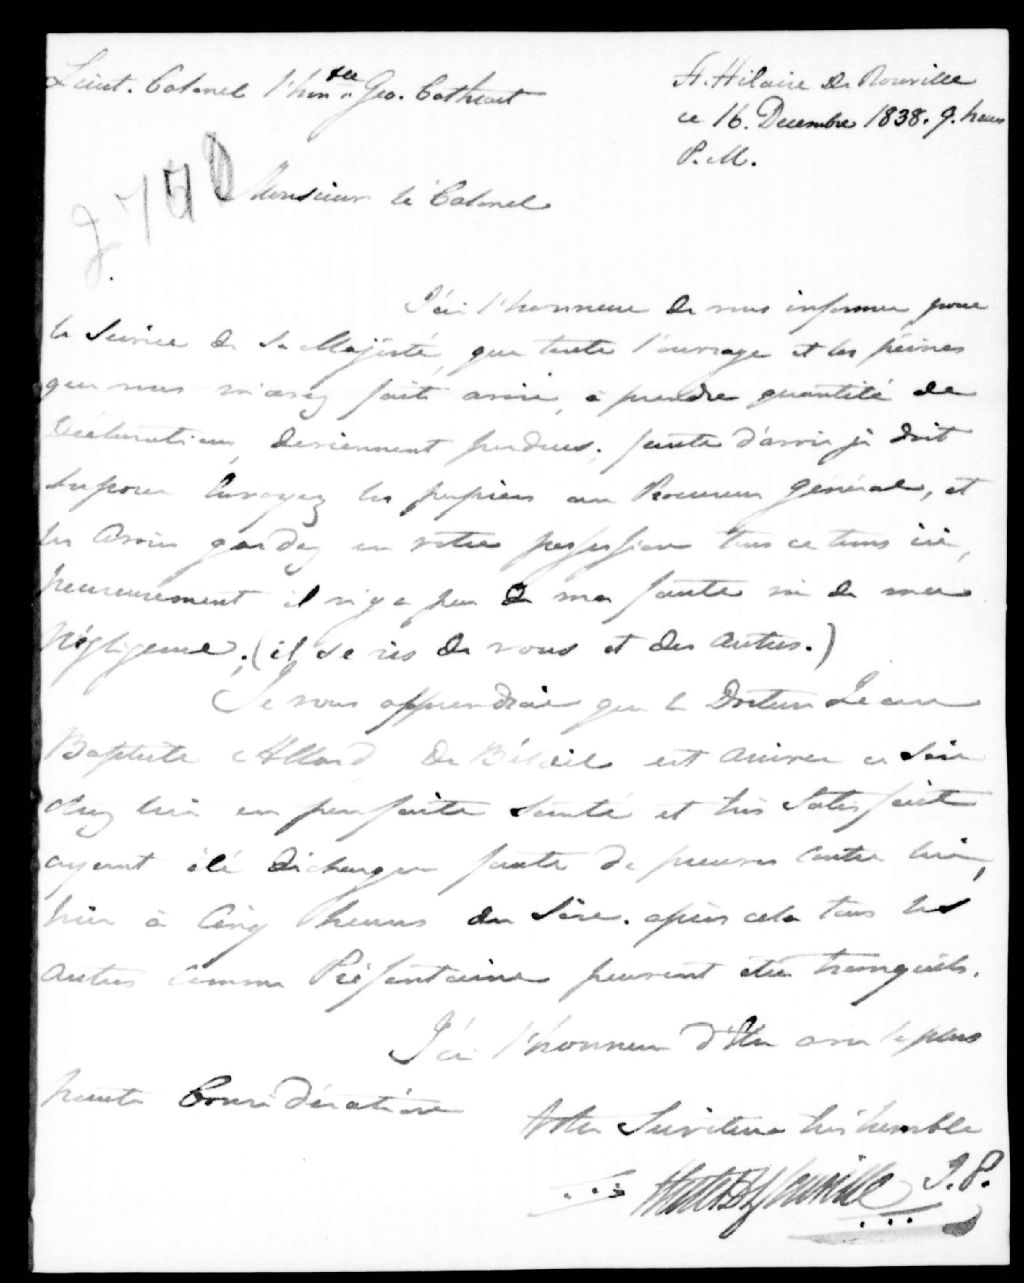 Lieut. Colonel l'hon.ble Geo. Cathcart
St. Hilaire de Rouville
ce 16. Decembre 1838. 9. heures
P. M.
Monsieur le Colonel
J'ai l'honneur de vous informer pour
le Service de Sa Majésté, que toute l'ouvrage et les peines
que vous m'avez fait avoir, à prendre quantité de
Déclarations, deviennent perdues. faute d'avoir je doit
Suposer Envoyez les papiers au Procureur Général, et
les Avoir gardez en votre possession tous ce tems ici,
heureusement il n'y a peu de ma faute ni de ma
Négligence. (il se ris de vous et des autres.)
Je vous apprendrai que le Docteur Jean
Baptiste Allard, De Bélœil est arrivez ce Soir
chez lui en parfaite Santé et très Satisfait
ayant été décharger faute de preuves contre lui,
hier à Cinq heures du Soir. après cela tous les
autres comme Préfontaine peuvent être tranquils.
J'ai l'honneur d'être avec la plus
haute Considération
Votre Serviteur très humble
J. P.